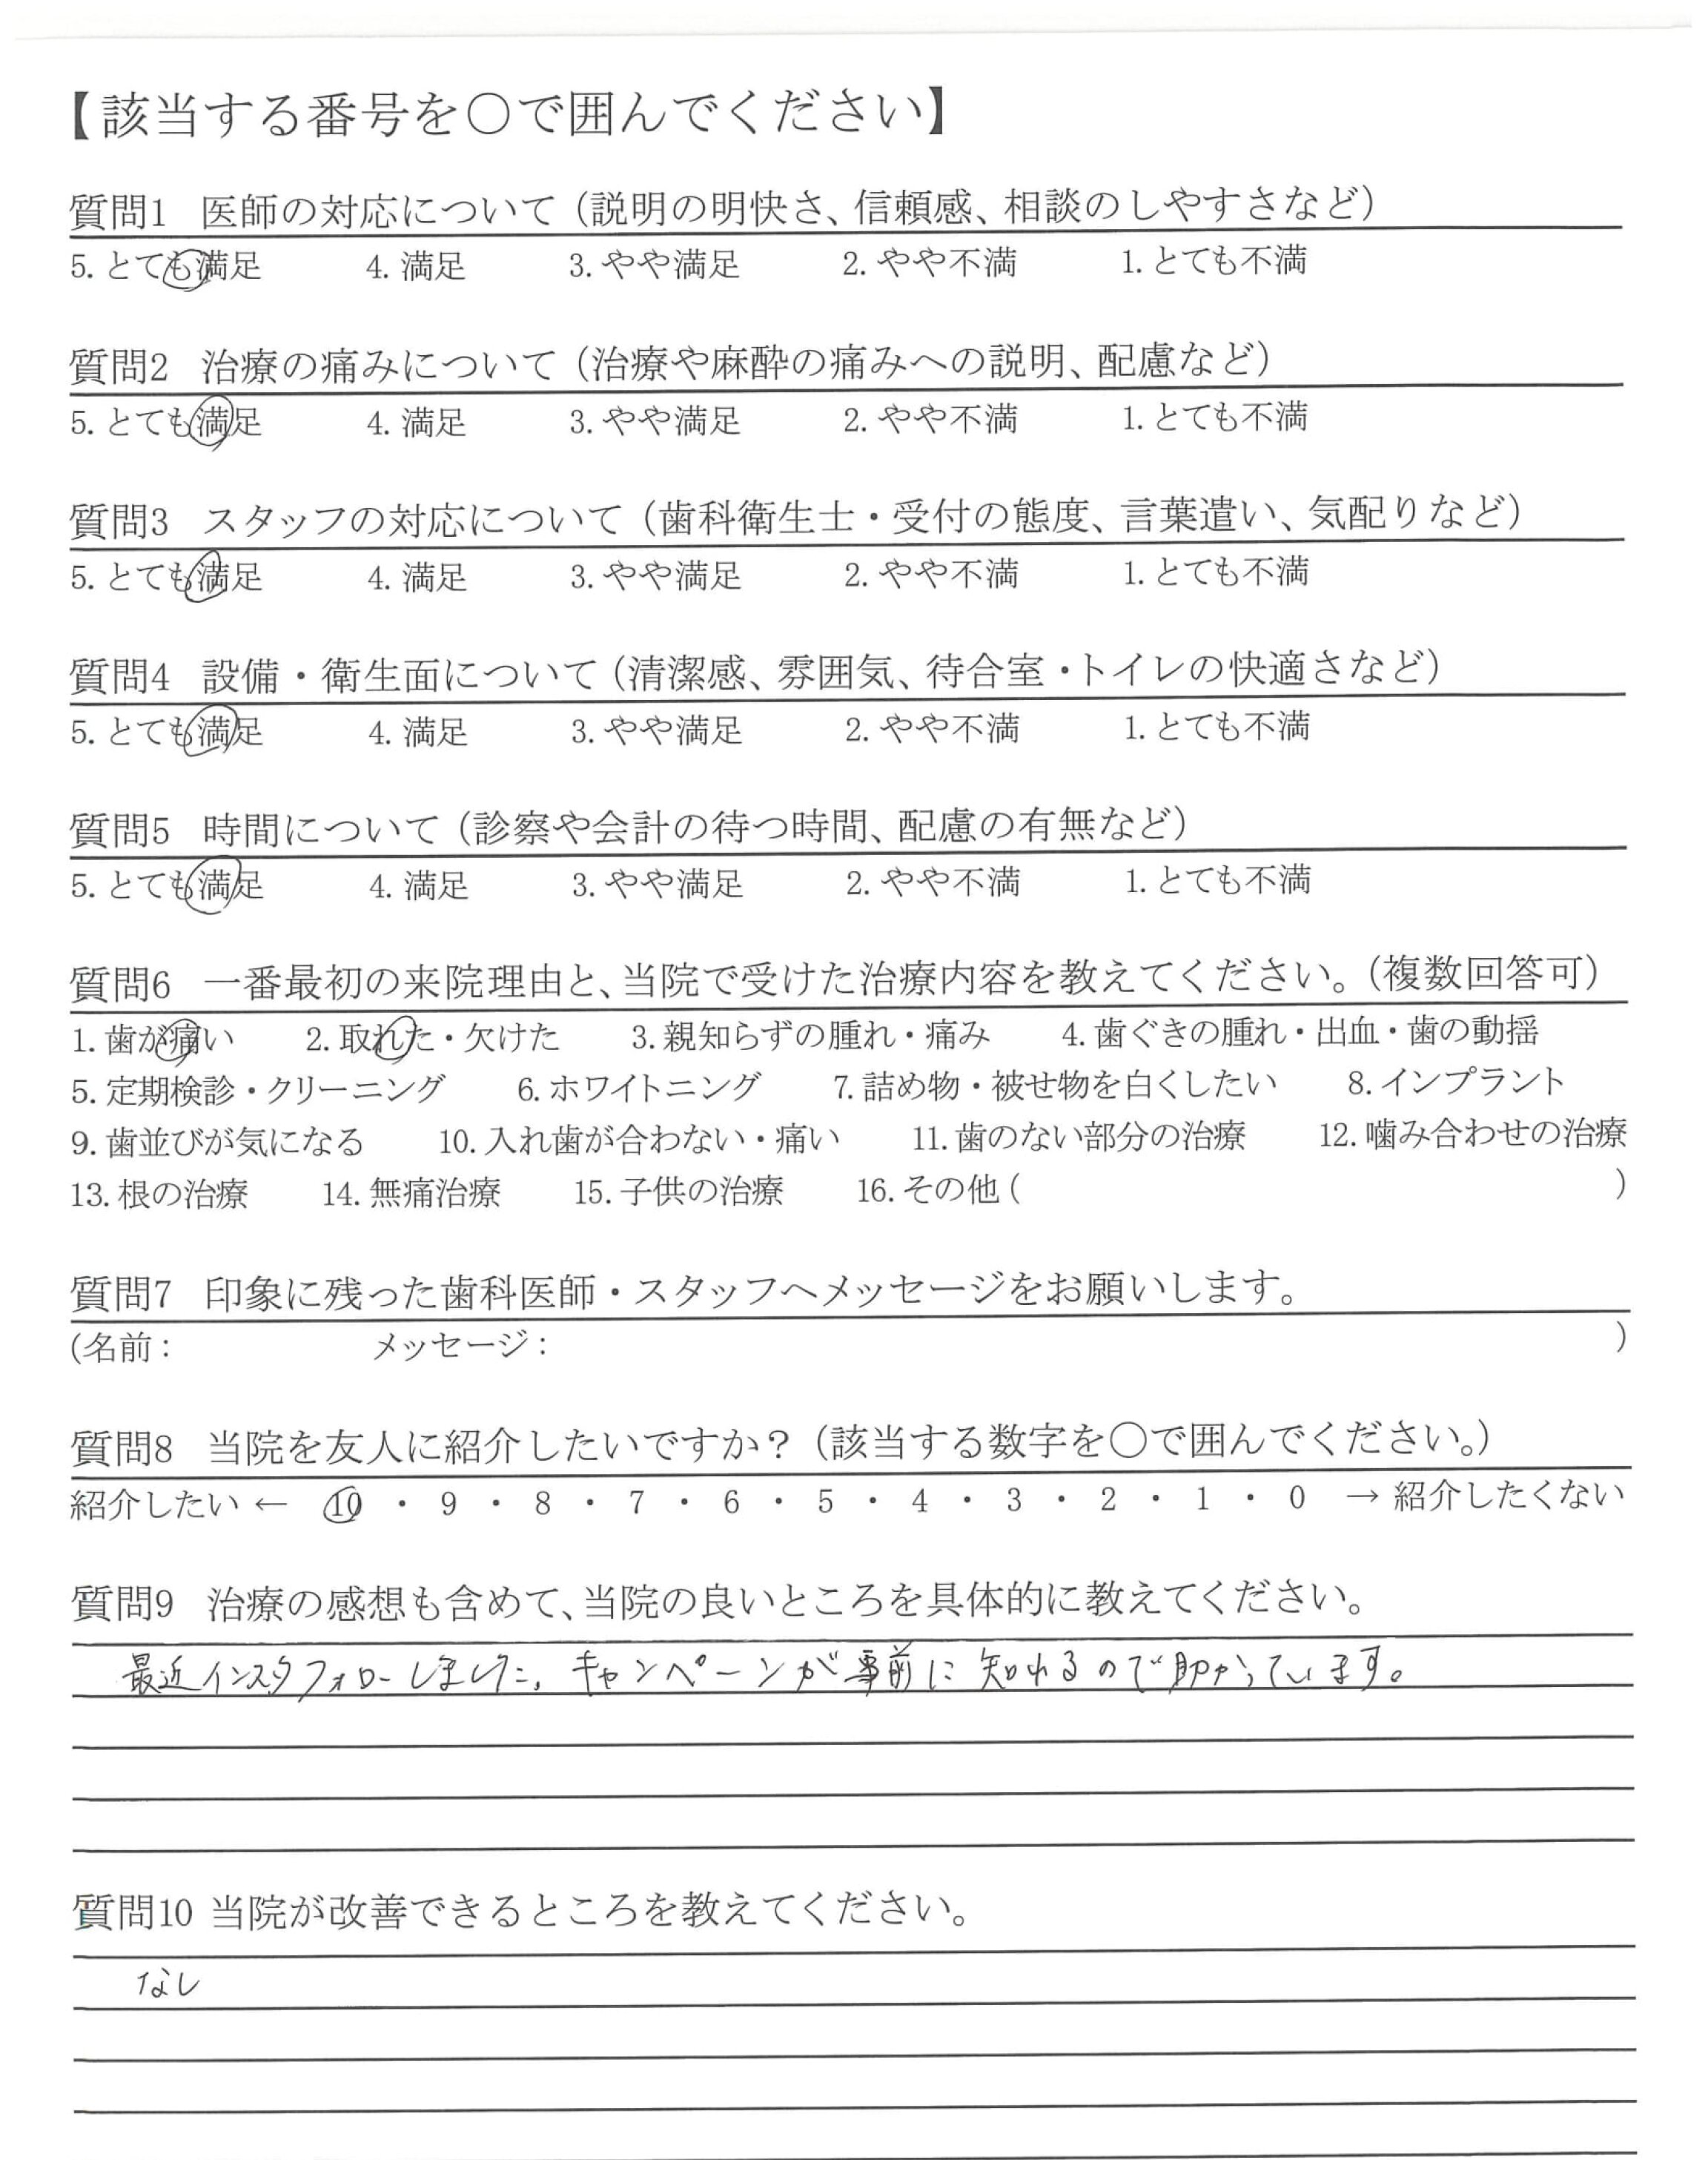 【該当する番号を○で囲んでください】
質問1 医師の対応について（説明の明快さ、信頼感、相談のしやすさなど）
5. とても満足 4. 満足 3. やや満足 2. やや不満 1. とても不満
質問2 治療の痛みについて（治療や麻酔の痛みへの説明、配慮など）
5. とても満足 4. 満足 3. やや満足 2. やや不満 1. とても不満
質問3 スタッフの対応について（歯科衛生士・受付の態度、言葉遣い、気配りなど）
5. とても満足 4. 満足 3. やや満足 2. やや不満 1. とても不満
質問4 設備・衛生面について（清潔感、雰囲気、待合室・トイレの快適さなど）
5. とても満足 4. 満足 3. やや満足 2. やや不満 1. とても不満
質問5 時間について（診察や会計の待つ時間、配慮の有無など）
5. とても満足 4. 満足 3. やや満足 2. やや不満 1. とても不満
質問6 一番最初の来院理由と、当院で受けた治療内容を教えてください。（複数回答可）
1. 歯が痛い 2. 取れた・欠けた 3. 親知らずの腫れ・痛み 4. 歯ぐきの腫れ・出血・歯の動揺
5. 定期検診・クリーニング 6. ホワイトニング 7. 詰め物・被せ物を白くしたい 8. インプラント
9. 歯並びが気になる 10. 入れ歯が合わない・痛い 11. 歯のない部分の治療 12. 噛み合わせの治療
13. 根の治療 14. 無痛治療 15. 子供の治療 16. その他（ ）
質問7 印象に残った歯科医師・スタッフへメッセージをお願いします。
（名前： メッセージ： ）
質問8 当院を友人に紹介したいですか？（該当する数字を○で囲んでください。）
紹介したい ← 10 ・ 9 ・ 8 ・ 7 ・ 6 ・ 5 ・ 4 ・ 3 ・ 2 ・ 1 ・ 0 → 紹介したくない
質問9 治療の感想も含めて、当院の良いところを具体的に教えてください。
最近インスタフォローしました、キャンペーンが事前に知れるので助かっています。
質問10 当院が改善できるところを教えてください。
なし